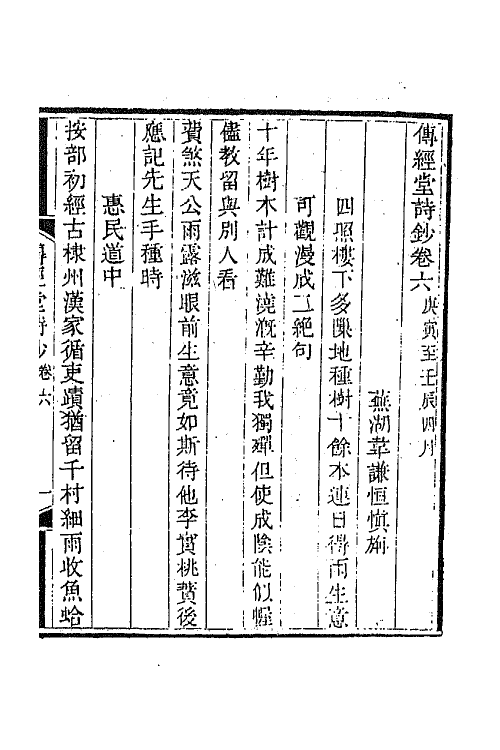 傳經堂詩鈔卷六庚寅至壬辰四月
蕪湖韋謙恒慎旃
四照樓下多隙地種樹十餘本連日得雨生意
可觀漫成二絕句
十年樹木計成難澆溉辛勤我獨殫但使成陰能似幄
儘教留與別人看
費煞天公雨露滋眼前生意竟如斯待他李實桃蕡後
應記先生手種時
惠民道中
按部初經古棣州漢家循吏蹟猶留千村細雨收魚蛤
傳經堂詩鈔卷六 一